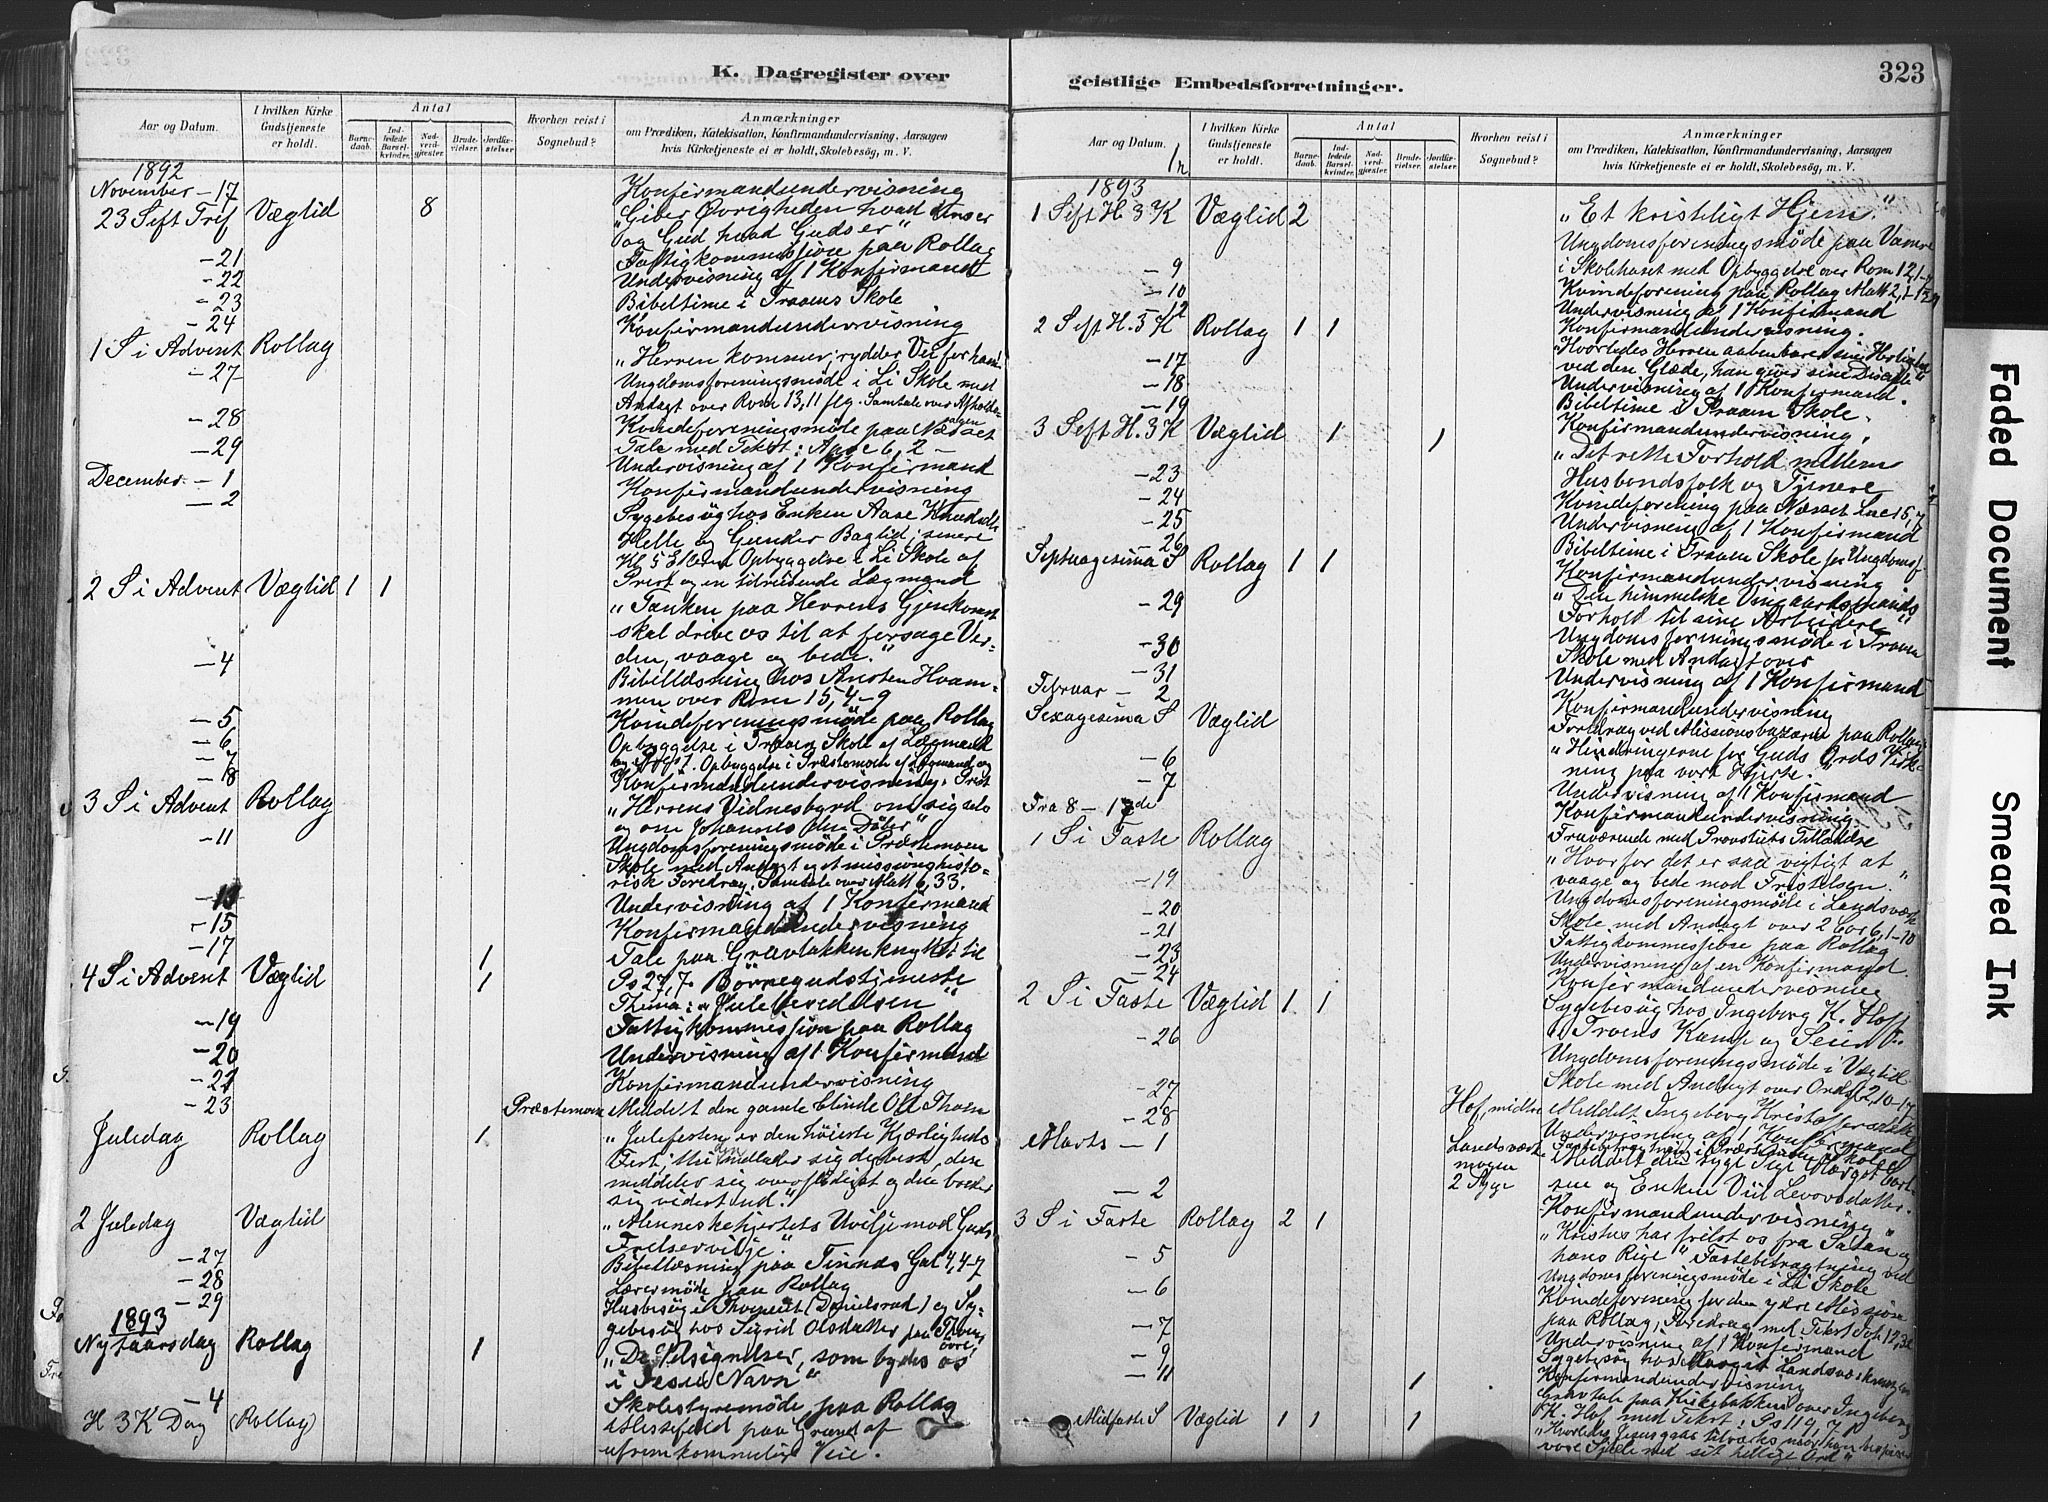 K. Dagregister over
Aar og Datum.
I hvilken Kirke Gudstjeneste er holdt.
Antal
Barnedaab.
Indledede Barselkvinder.
Nadverdgjæster.
Brudevielser.
Jordfæstelser.
Hvorhen reist i Sognebud?
Anmærkninger
om Prædiken, Katekisation, Konfirmandundervisning, Aarsagen
hvis Kirketjeneste ei er holdt, Skolebesøg, m. V.
1892
November - 17 Konfirmandundervisning
23 S eft Tref Væglid 8 „Giver Øvrigheden hvad hans er
og Gud hvad Guds er“
- 21 Fattigkommissjon paa Rollag
- 22 Undervisning af 1 Konfirmand
- 23 Bibeltime i Traaens Skole
- 24 Konfirmandundervisning
1 S i Advent Rollag „Herren kommer; rydder Vei for ham“
- 27 Ungdomsforeningsmøde i Li Skole med
Andagt over Rom 13,11 flg. Samtale over Afholds-
sagen
- 28 Kvindeforeningsmøde paa Næsset
- 29 Tale med Tekst: 6, 2 -
Undervisning af 1 Konfirmand
December - 1 Konfirmandundervisning
- 2 Sygebesøg hos Eriken Aase Knudsdtr
Helle og Gunder Bagtid; senere
Kl 5 Efterm Opbyggelse i Li Skole af
Prest og en tilreisende Lægmand
2 S i Advent Væglid 1 1 „Tanken paa Herrens Gjenkomst
skal drive os til at forsage Ver-
den, vaage og bede.“
- 4 Bibellæsning hos Ansten Hvam-
men over Rom 15, 4-9
- 5 Kvindeforeningsmøde paa Rollag
- 6 Opbyggelse i Traaen Skole af Lægmand
- 7 Opbyggelse i Præstemoen af Lægmand og
- 8 Konfirmandundervisning. Prest
3 S i Advent Rollag „Herrens Vidnesbyrd om sig selv
og om Johannes den Døber“
- 11 Ungdomsforeningsmøde i Præstemoen
Skole med Andagt og et missionshisto-
risk Foredrag. Samtale over Matt 6, 33.
- 13 Undervisning af 1 Konfirmand
- 15 Konfirmandundervisning
- 17 1 Tale paa Gravbakken knyttet til
4 S i Advent Væglid 1 Ps 27,7. Børnegudstjeneste
Thema: „Juleberedelsen“
- 19 Fattigkommissjon paa Rollag
- 20 Undervisning af 1 Konfirmand
- 22 Konfirmandundervisning
- 23 Præstemoen Meddelt den gamle blinde Ole Thoen
Juledag Rollag 1 „Julefesten er den høieste Kjærligheds
Fest, thi den nedlader sig dybest, den
meddeler sig overflødigst og den breder
sig videst ud.“
2 Juledag Væglid „Menneskehjertets Uvilje mod Guds
Frelservilje“.
- 27 Bibellæsning paa Tinnes Gal 4, 4-7
- 28 Lærermøde paa Rollag
- 29 Husbesøg i (Danielsrud) og Sy-
gebesøg hos Sigrid Olsdatter paa
1893
Nytaarsdag Rollag 1 „De Velsignelser, som bydes os
i Jesu Navn“
- 4 Skolestyremøde paa Rollag
H 3 K Dag (Rollag) Messefald paa Grund af
ufremkommelig Veie.
geistlige Embedsforretninger.
323
Aar og Datum.
I hvilken Kirke Gudstjeneste er holdt.
Antal
Barnedaab.
Indledede Barselkvinder.
Nadverdgjæster.
Brudevielser.
Jordfæstelser.
Hvorhen reist i Sognebud?
Anmærkninger
om Prædiken, Katekisation, Konfirmandundervisning, Aarsagen
hvis Kirketjeneste ei er holdt, Skolebesøg, m. V.
1893
1 S eft H. 3 K Væglid 2 „Et kristeligt Hjem.“
Ungdomsforeningsmøde paa
i Skolehuset med Opbyggelse over Rom 12,1-
- 9 Kvindeforening paa Rollag Matt 2, 1-12
- 10 Undervisning af 1 Konfirmand
- 12 Konfirmandundervisning.
2 S eft H. 3 K Rollag 1 1 „Hvorledes Herren aabenbarer sin Herlighed
ved den Glæde, han giver sine Disciple“
- 17 Undervisning af 1 Konfirmand.
- 18 Bibeltime i Traaen Skole.
- 19 Konfirmandundervisning.
3 S eft H. 3 K Væglid 1 1 „Det rette Forhold mellem
Husbondsfolk og Tjenere
- 23 Kvindeforening paa Næsset Luc 15, 7
- 24 Undervisning af 1 Konfirmand
- 25 Bibeltime i Traaen Skole for Ungdomsf
- 26 Konfirmandundervisning
Septuagesima S Rollag 1 1 „Den himmelske Vingaardsmands
Forhold til sine Arbeidere“
- 29 Ungdomsforeningsmøde i Traaen
Skole med Andagt over
- 30
- 31 Undervisning af 1 Konfirmand
Februar - 2 Konfirmandundervisning
Foredrag ved Missionsbazaren paa Rollag
Sexagesima S Væglid „Hindringerne for Guds Ords Virk-
ning paa vort Hjerte.“
- 6 Undervisning af 1 Konfirmand
- 7 Konfirmandundervisning
Fra 8 - 17de Fraværende med Provstiets Tilladelse
1 S i Faste Rollag „Hvorfor det er saa vigtigt at
vaage og bede mod Fristelsen.“
- 19 Ungdomsforeningsmøde i Landsværk
Skole med Andagt over 2 Cor 6, 1-10
- 20 Fattigkommissjon paa Rollag
- 21 Undervisning af en Konfirmand
- 23 Konfirmandundervisning
- 24 Sygebesøg hos Ingeborg K. Hof
2 S i Faste Væglid 1 1
- 26 Ungdomsforeningsmøde i Væglid
Skole med Andagt over Ords 2, 10-17
- 27 Hof, midtre Meddelt Ingeborg Kristoffersdtr
- 28 Undervisning af 1 Konfirmand
Marts - 1 Landsværk- Fastebetragtning i Præstemoen Skole
mogen Meddelt den syge Margit
2 Syge sen og Eriken
- 2 Konfirmandundervisning
3 S i Faste Rollag 2 1 „Kristus har frelst os fra Satan og
hans Rige“ Fastebetragtning ved
- 5 Ungdomsforeningsmøde i Li Skole
- 6 Kvindeforening for den ydre Mission
paa Rollag, Foredrag med Tekst Joh 12, 32
- 7 Undervisning af 1 Konfirmand
- 9 Sygebesøg hos Margit Landsværkmogen
Konfirmandundervisning
- 11 1 Gravtale paa Kirkebakken over Ingeborg
K. Hof med Tekst: Ps 119, 70
Midfaste S Væglid 1 1 1 „Hvorledes Jesus
vore Sjæle med sit hellige Ord“
Faded Document
Smeared Ink